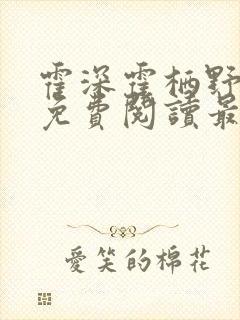 霍深霍栖野
免費閱讀最
愛笑的棉花